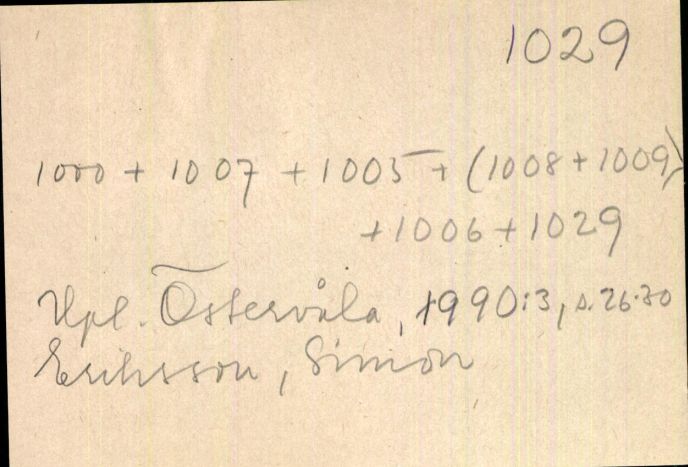 1029
1000 + 1007 + 1005 + (1008 + 1009)
+1006 + 1029
Upl. Östervåla, 1990:3, s. 26-30
Eriksson, Simon